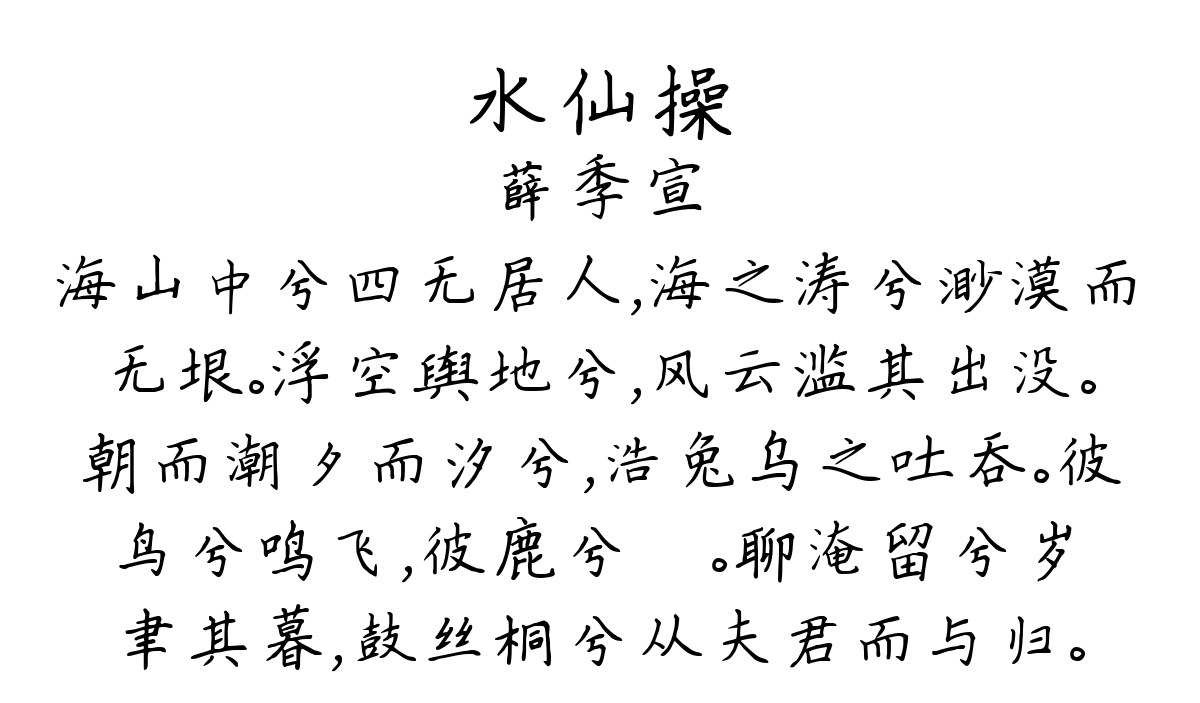 水仙操
薛季宣
海山中兮四无居人,海之涛兮渺漠而
无垠。浮空舆地兮,风云滥其出没。
朝而潮夕而汐兮,浩兔乌之吐吞。彼
鸟兮鸣飞,彼鹿兮 。聊淹留兮岁
聿其暮,鼓丝桐兮从夫君而与归。